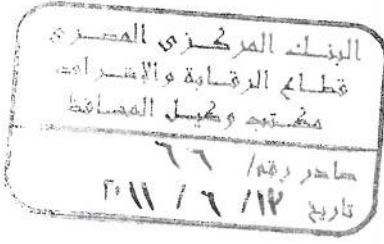 البنك المركزى المصرى
قطاع الرقابة والاشراف
مكتب وكيل المحافظ
صادر رقم/ ٦٦
تاريخ ١٣ / ٦ / ٢٠١١